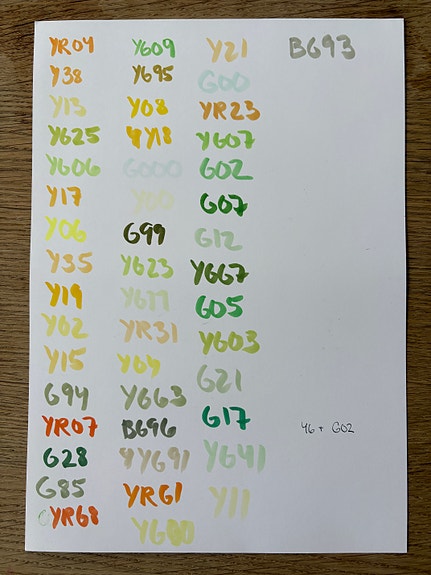 YR04
Y38
Y13
YG25
YG06
Y17
Y06
Y35
Y19
YG2
Y15
G94
YR07
G28
G85
YR68
YG09
YG95
Y08
Y18
G000
Y00
G99
YG23
YG11
YR31
Y04
YG63
BG96
YG91
YR61
YG00
Y21
G00
YR23
YG07
G02
G07
G12
YG67
G05
YG03
G21
G17
YG41
Y11
BG93
Y6 + G02